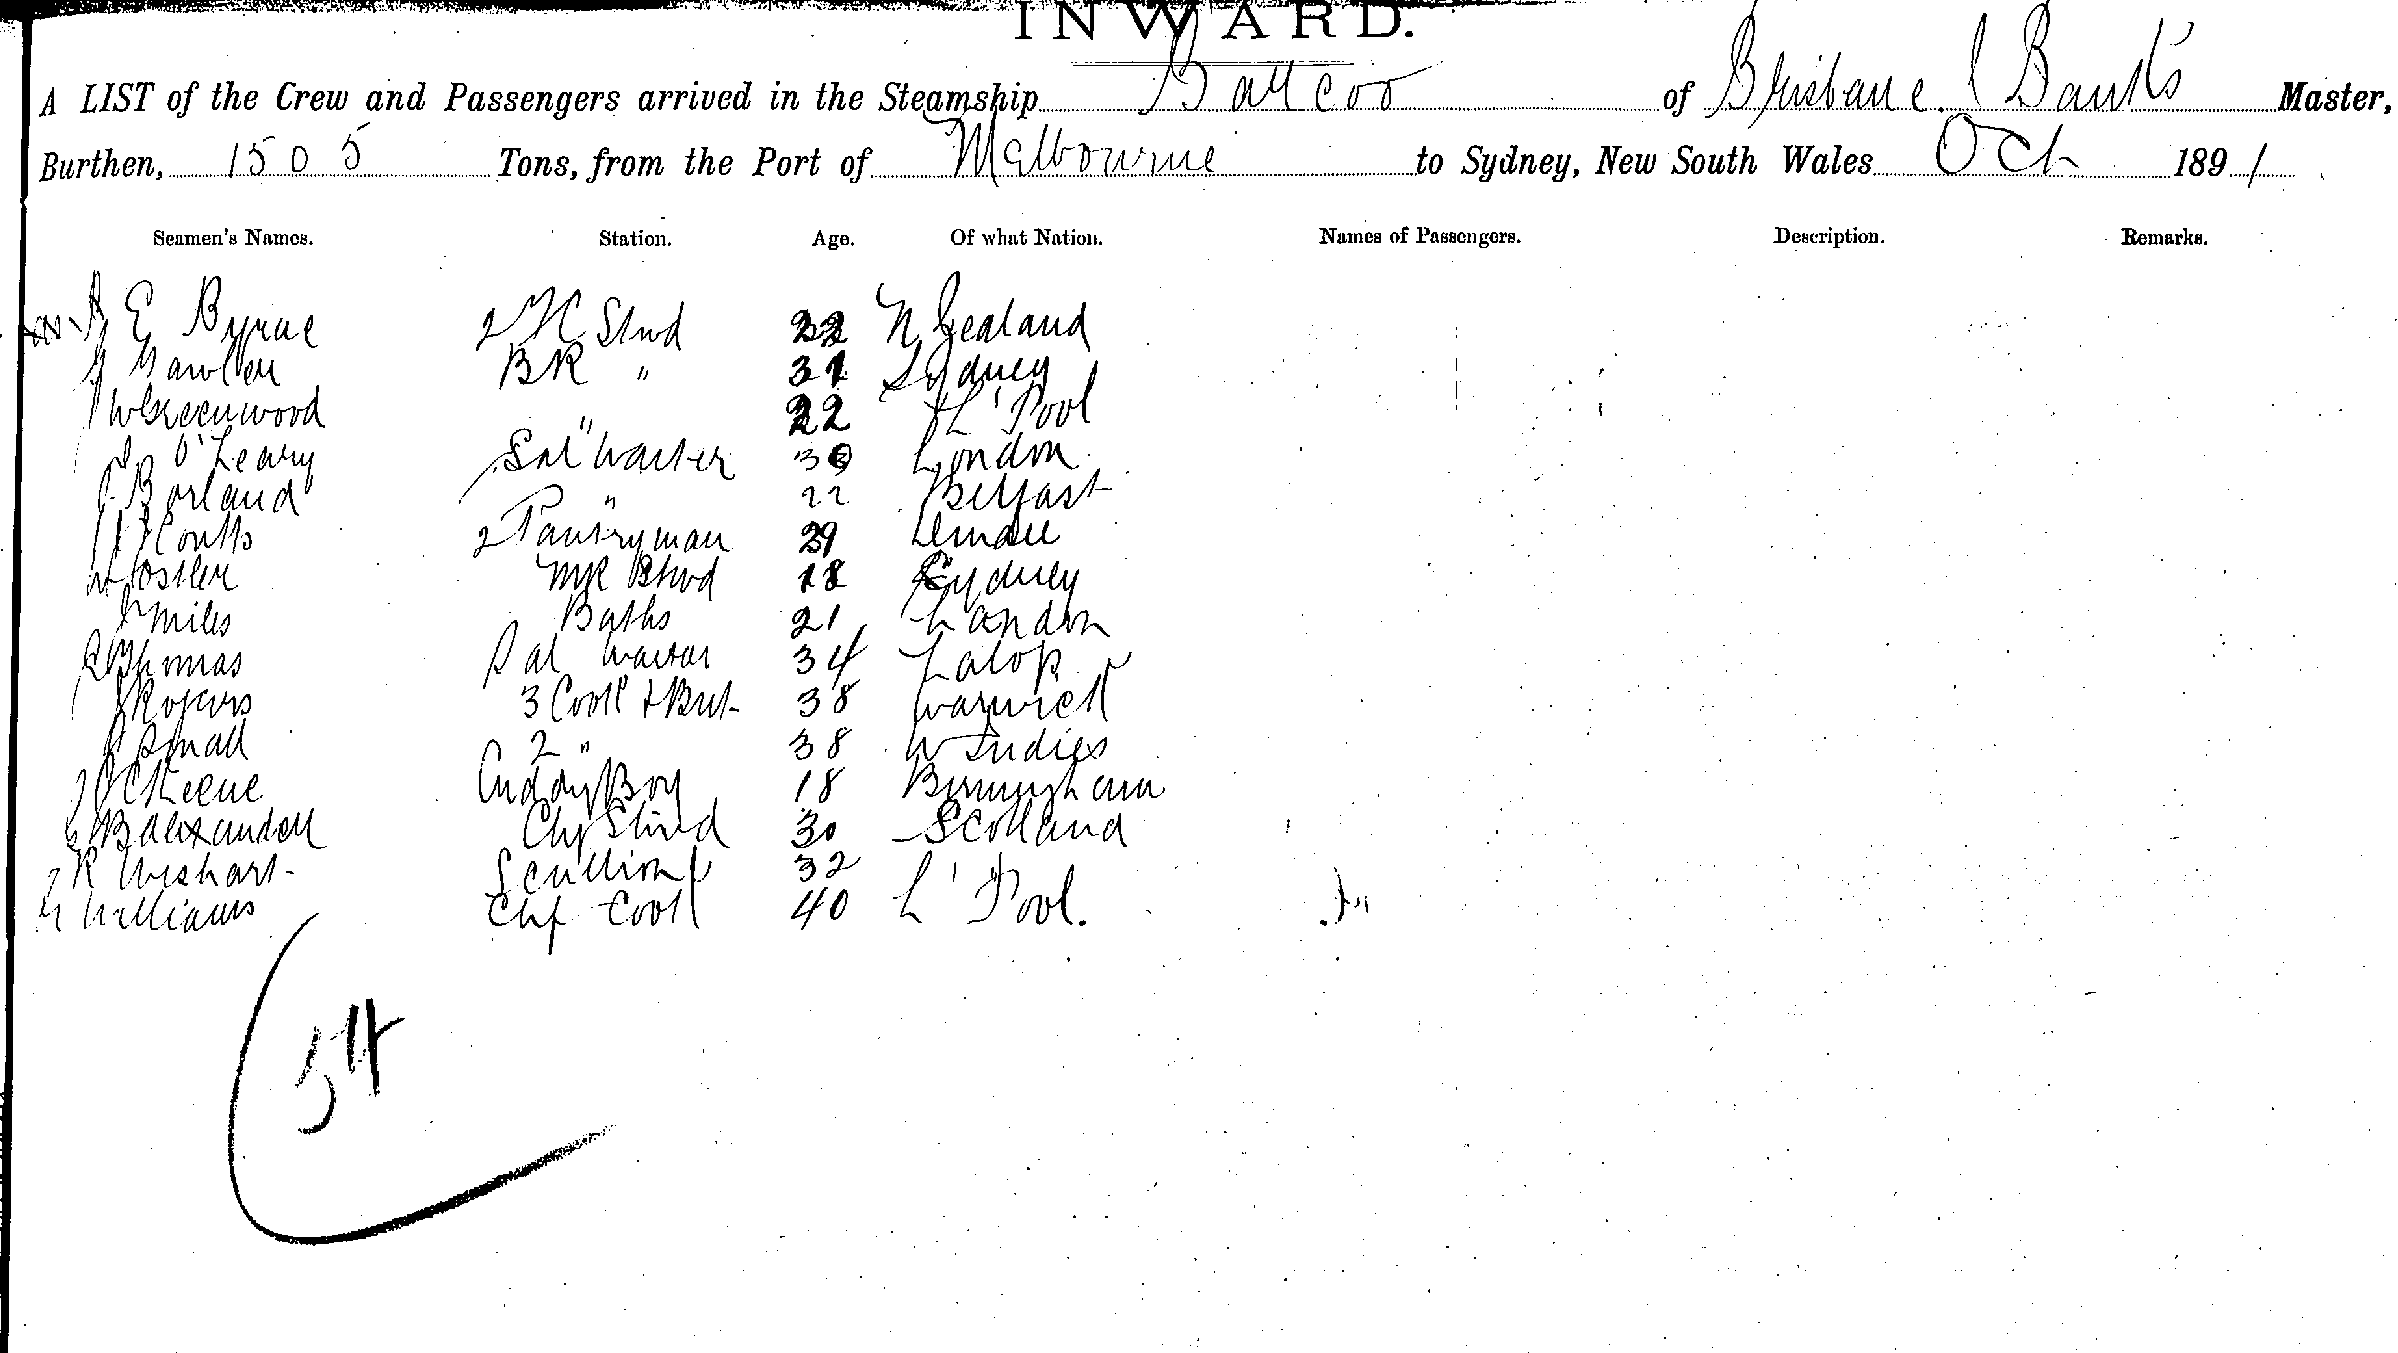 INWARD.
A LIST of the Crew and Passengers arrived in the Steamship Barcoo of Brisbane. Banks Master,
Burthen, 1505 Tons, from the Port of Melbourne to Sydney, New South Wales Oct 1891
Seamen's Names. Station. Age. Of what Nation. Names of Passengers. Description. Remarks.
E Byrne 2 Stwd 22 N Zealand
BR " 31 Sydney
W Greenwood " 22 L'Pool
O'Leary Sal Waiter 30 London
Borland " 22 Belfast
Coutts 2 Pantryman 29 Dundee
Hostler Stwd 18 Sydney
Miles Baths 21 London
Thomas Sal Waiter 34 Salop
Rogers 3 Cook & But 38 Warwick
Small 2 " 38 W Indies
Keene Cuddy Boy 18 Birmingham
Alexander Chf Stwd 30 Scotland
R Wishart Scullion 32
Williams Chf Cook 40 L'Pool.
54